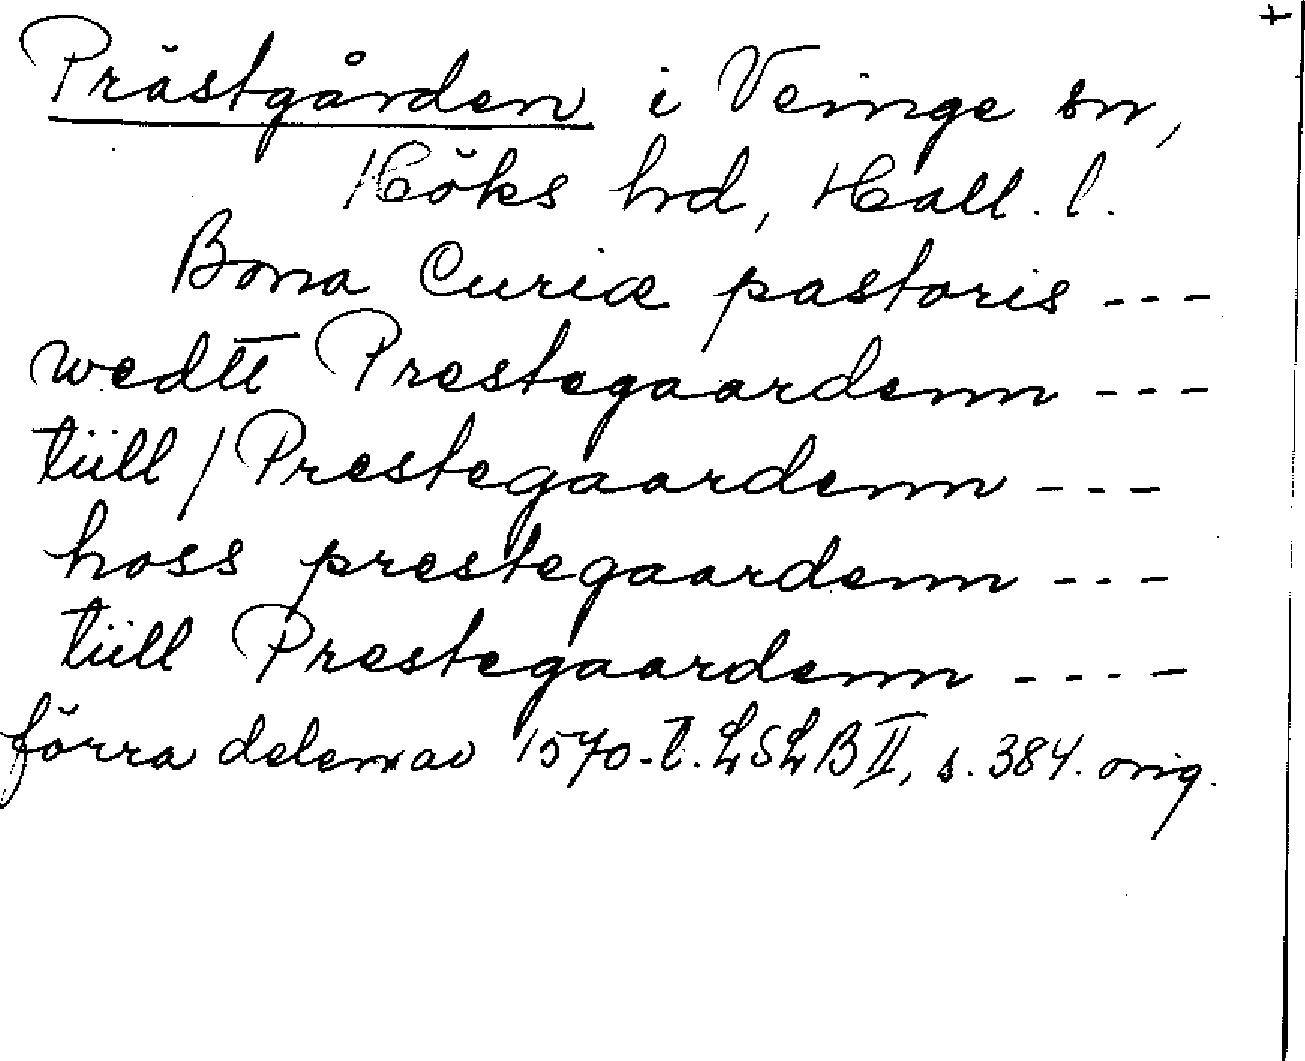 Prästgården i Veinge sn,
Höks hrd, Hall. l.
Bona Curiæ pastoris ---
wedtt Prestegaardenn ---
tüll / Prestegaardenn ---
hoss prestegaardenn ---
tüll Prestegaardenn ----
förra delen av 1570-t. LSLB II, s. 384. orig.